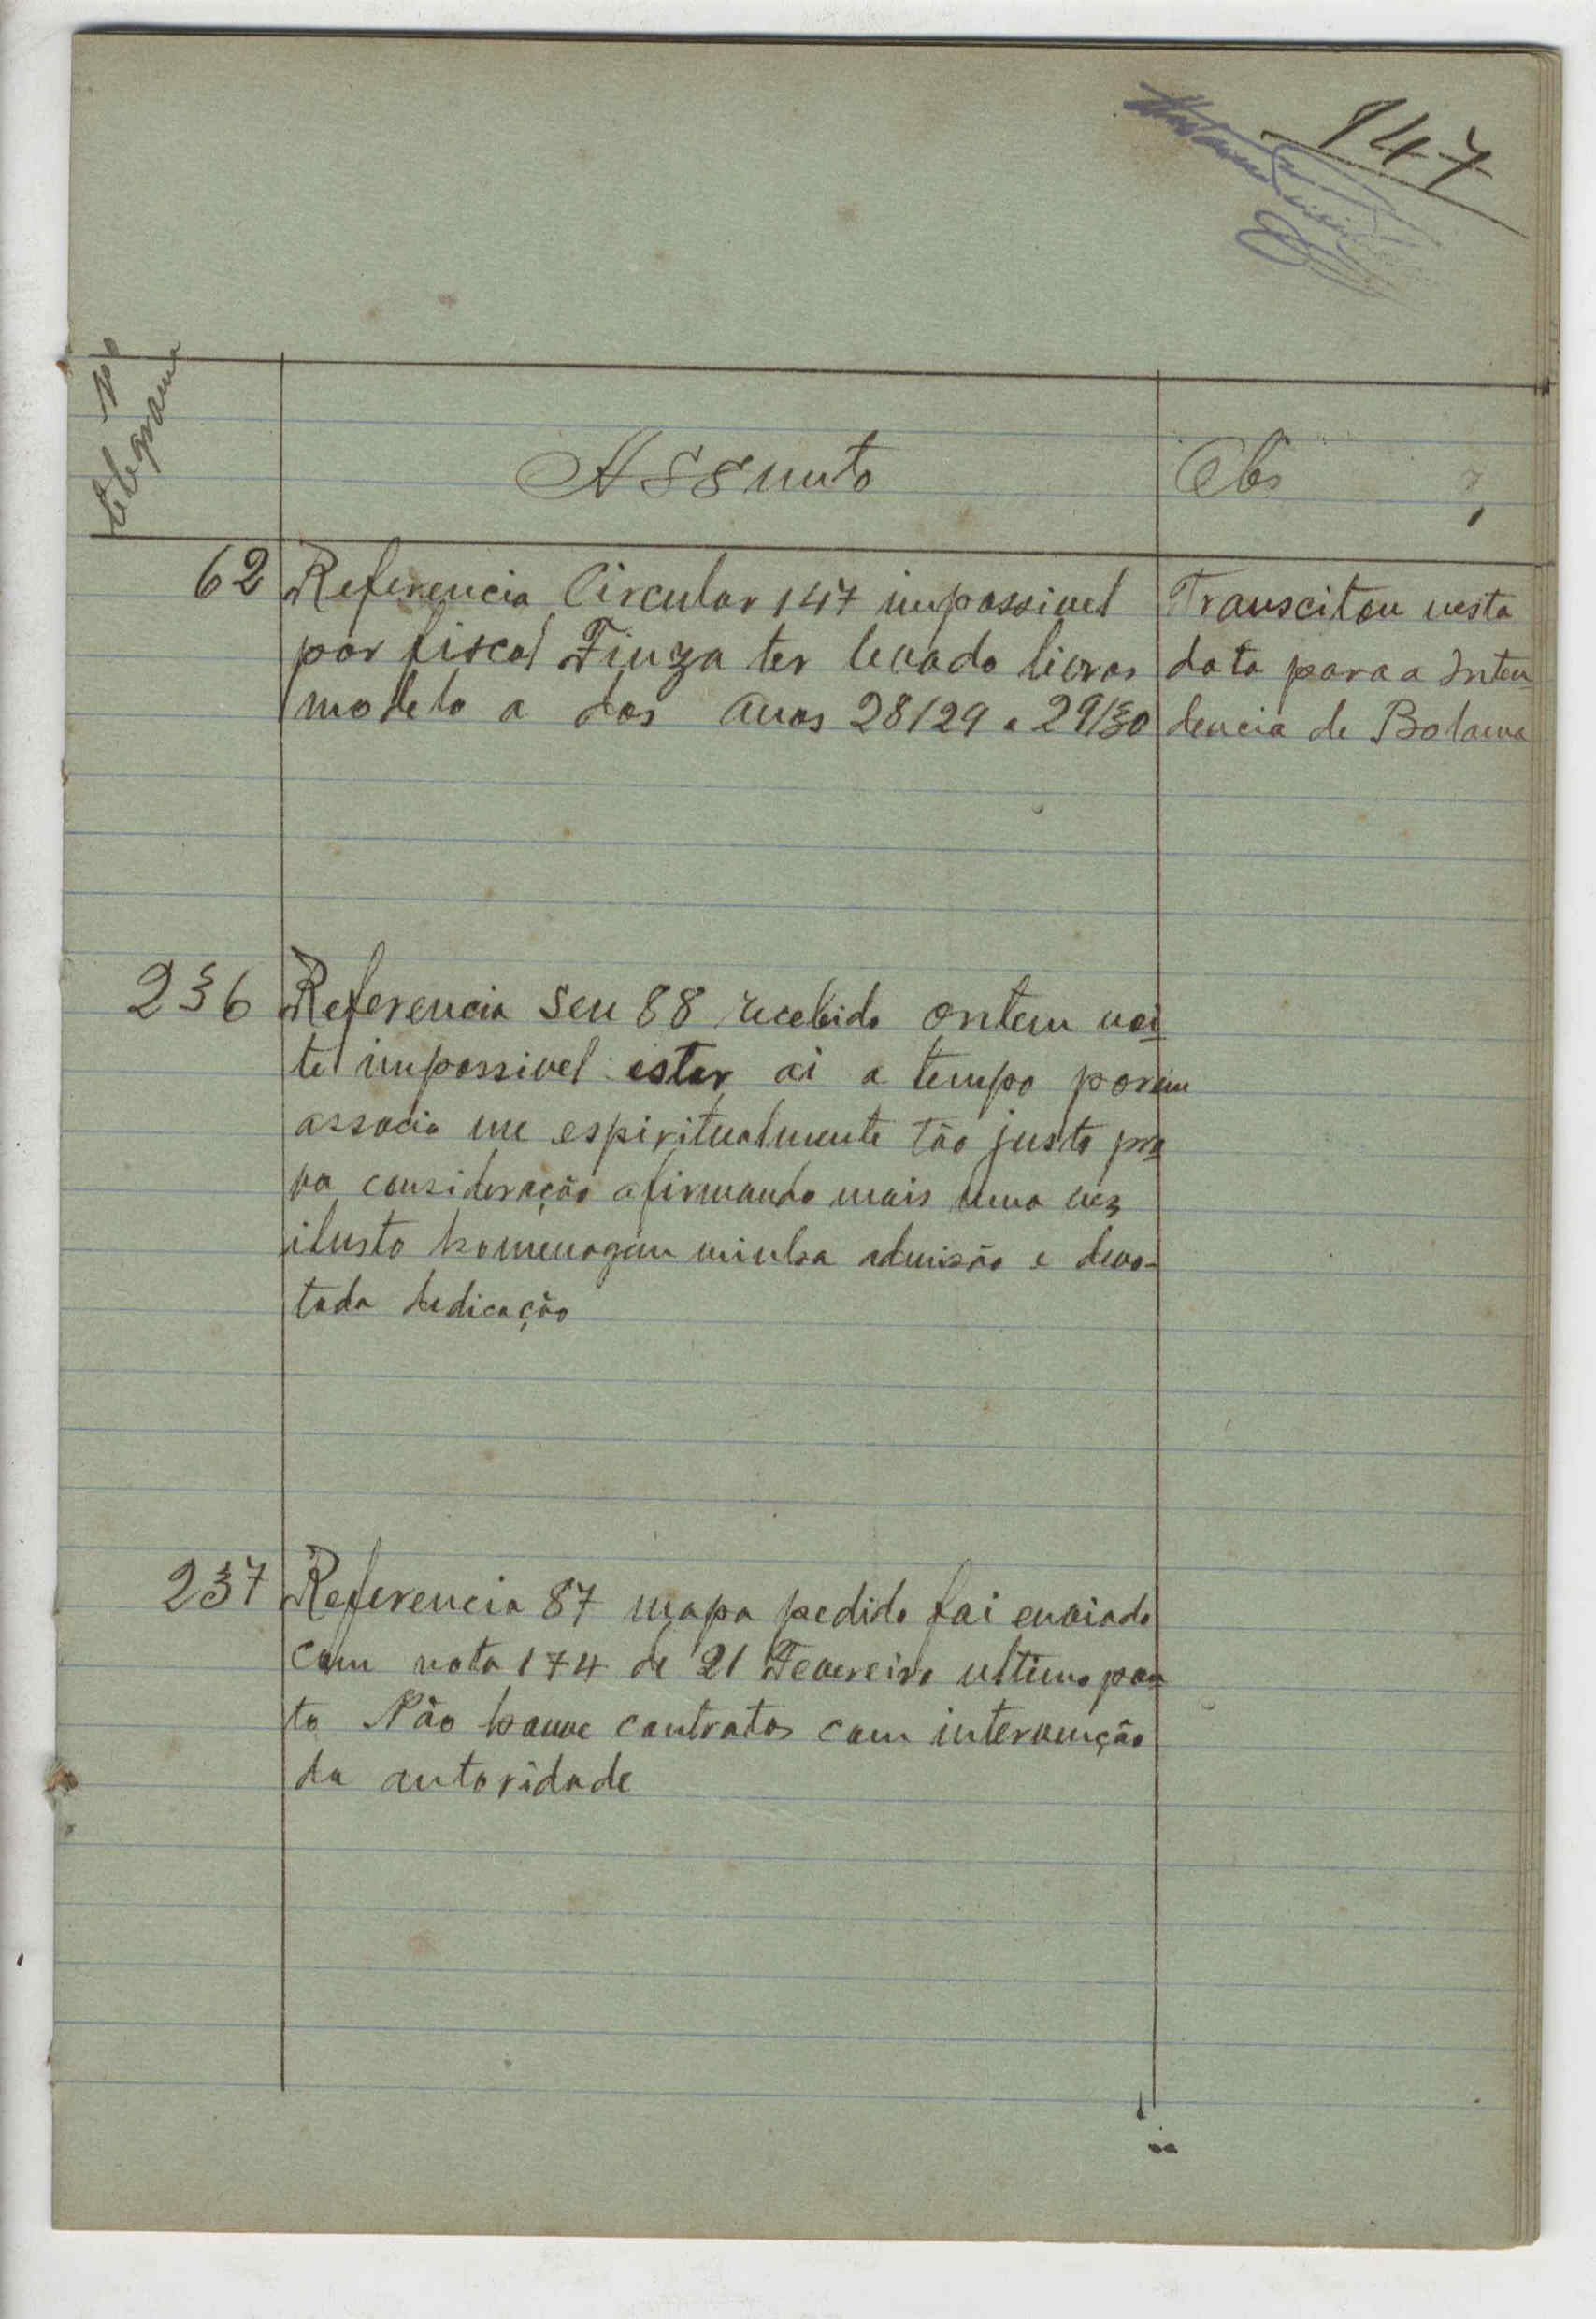 147
No
telegrama
Assunto
Obs
62 Referencia Circular 147 impossivel
por fiscal Fiuza ter levado livros
modelo a dos anos 28/29 e 29/30
Transcitou nesta
data para a Inten-
dencia de Bolama
236 Referencia seu 88 recebido ontem noi-
te impossivel estar ai a tempo porem
associo me espiritualmente tão justa pro-
va consideração afirmando mais uma vez
ilusto homenagem minha admisão e devo-
tada dedicação
237 Referencia 87 mapa pedido foi enviado
com nota 174 de 21 Fevereiro ultimo pon-
to Não houve contratos com intervenção
da autoridade